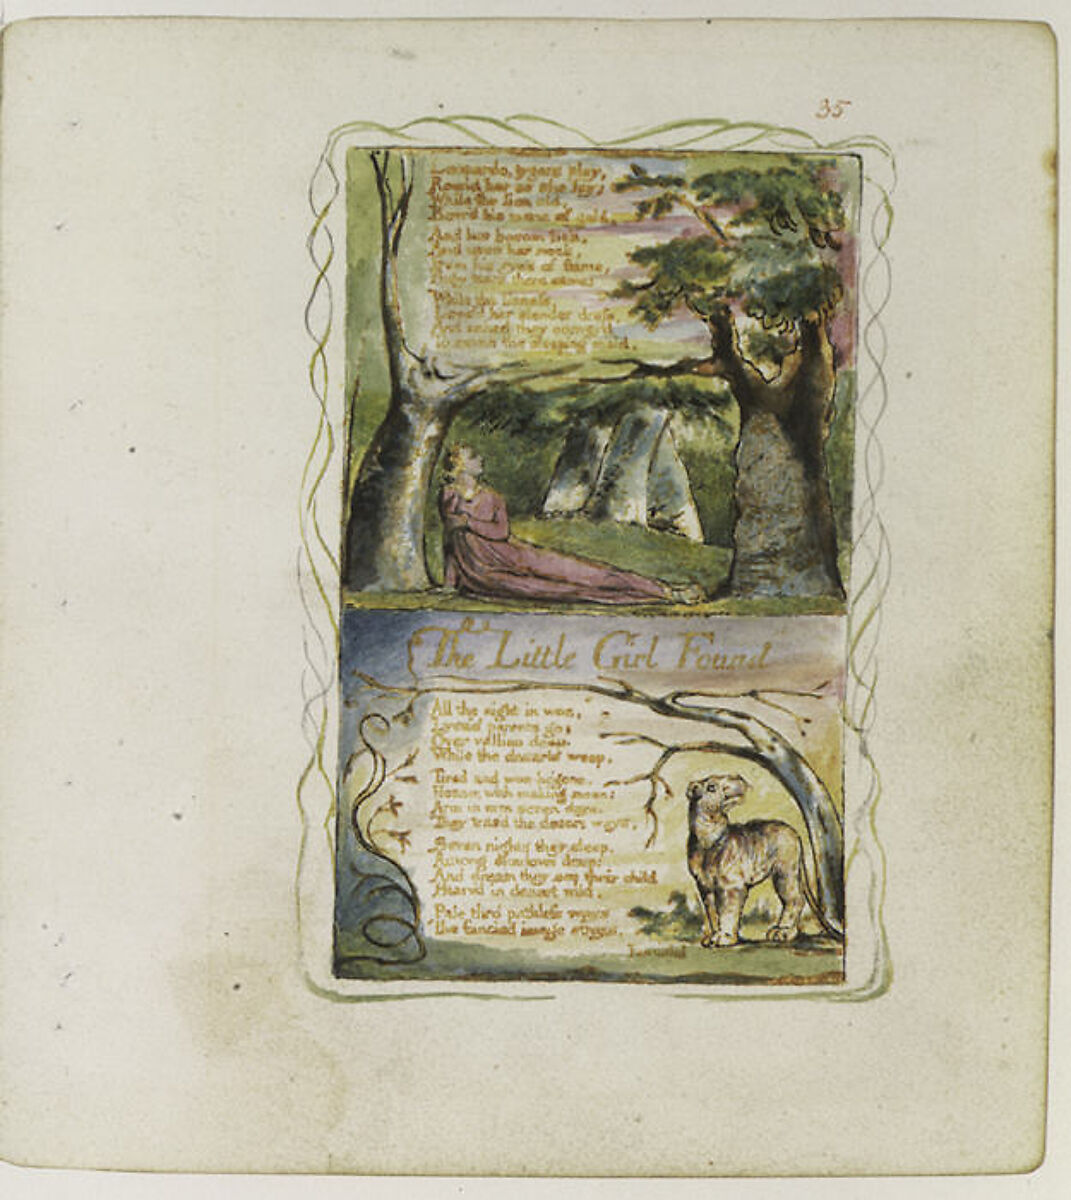 35
Leopards, tygers play,
Round her as she lay;
While the lion old,
Bow'd his mane of gold,
And her bosom lick,
And upon her neck,
From his eyes of flame,
Ruby tears there came;
While the lioness
Loos'd her slender dress,
And naked they convey'd
To caves the sleeping maid.
The Little Girl Found
All the night in woe,
Lyca's parents go:
Over vallies deep,
While the desarts weep.
Tired and woe-begone,
Hoarse with making moan:
Arm in arm seven days,
They trac'd the desart ways.
Seven nights they sleep,
Among shadows deep:
And dream they see their child
Starv'd in desart wild.
Pale thro' pathless ways
The fancied image strays,